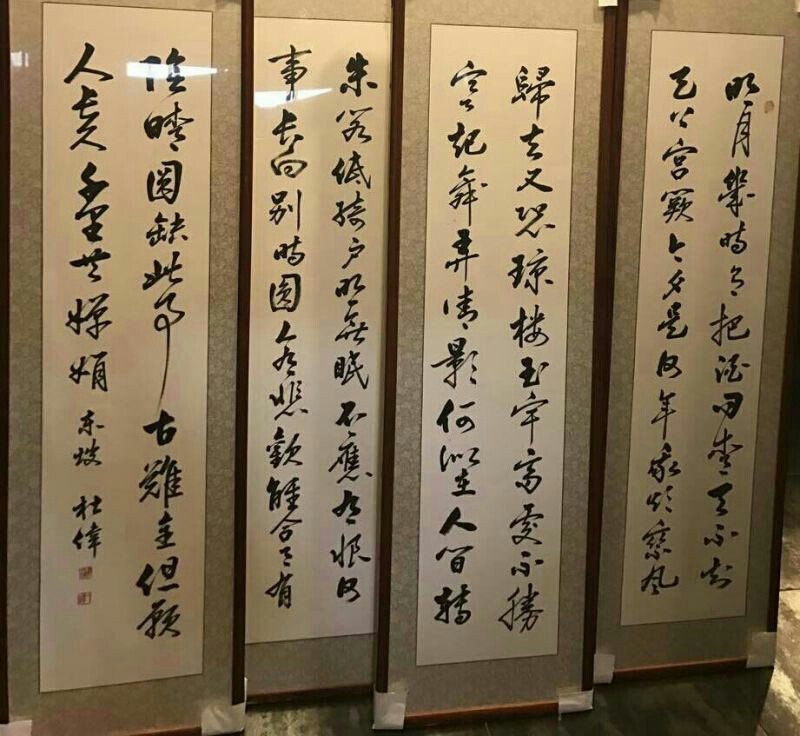 明月幾時有把酒问青天不知
天上宫阙今夕是何年我欲乘风
歸去又恐琼楼玉宇高處不勝
寒起舞弄清影何似在人间轉
朱阁低绮户照無眠不應有恨何
事長向别時圓人有悲歡離合月有
陰晴圓缺此事古難全但願
人長久千里共嬋娟 东坡 杜偉